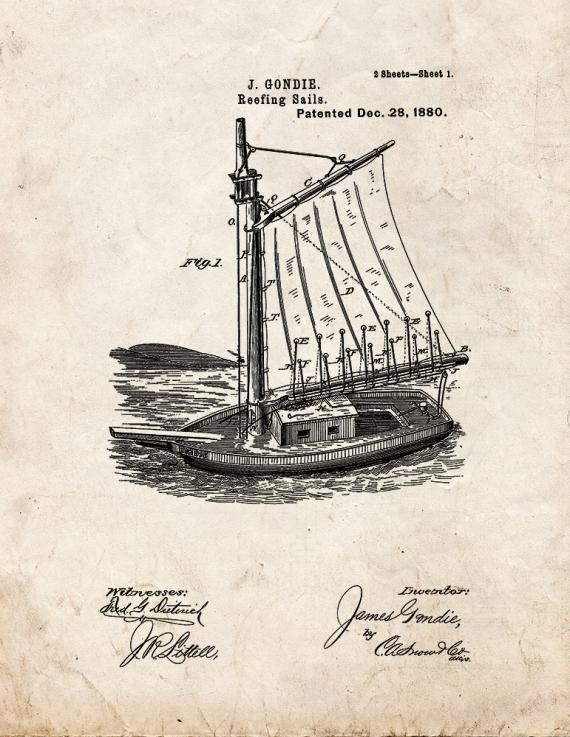 2 Sheets—Sheet 1.
J. GONDIE.
Reefing Sails.
Patented Dec. 28, 1880.
Fig. 1.
O.
C
D
T
T
E
E
B
Witnesses:
Fred. G. Dieterich
J. R. Littell,
Inventor:
James Gondie,
by
C. A. Snow & Co